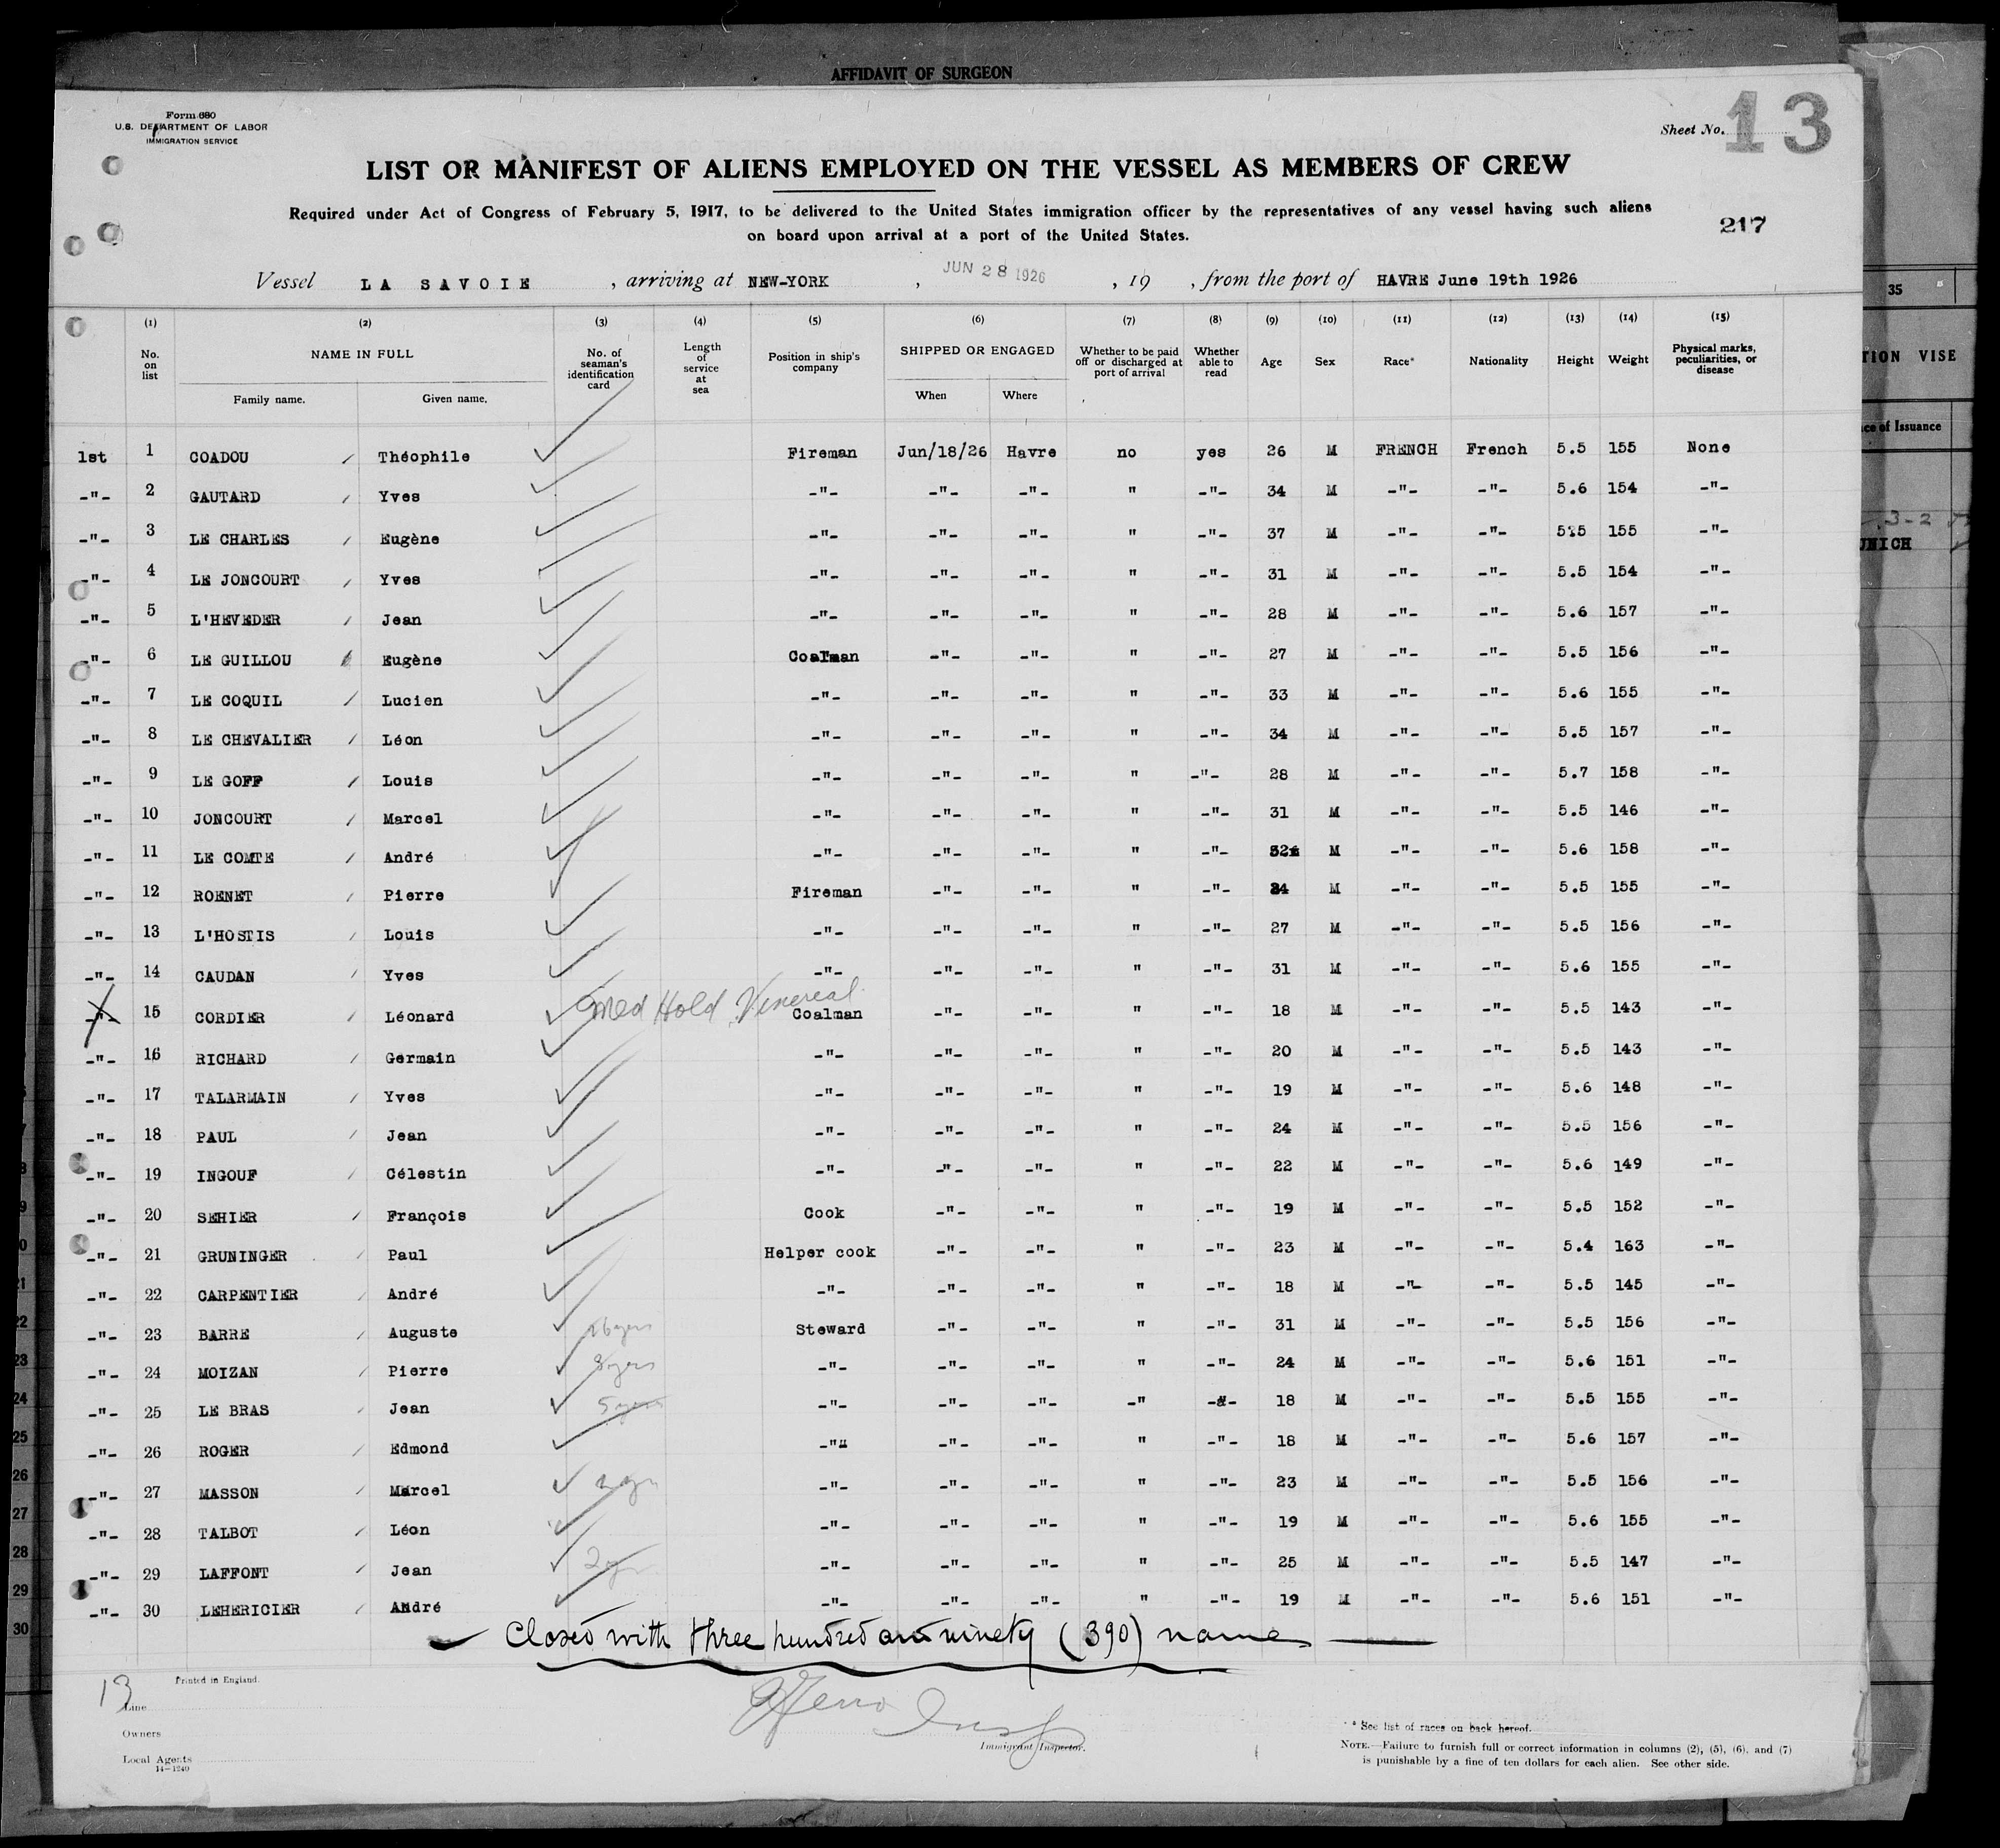 AFFIDAVIT OF SURGEON
Form 680
U.S. DEPARTMENT OF LABOR
IMMIGRATION SERVICE
Sheet No. 13
LIST OR MANIFEST OF ALIENS EMPLOYED ON THE VESSEL AS MEMBERS OF CREW
Required under Act of Congress of February 5, 1917, to be delivered to the United States immigration officer by the representatives of any vessel having such aliens
on board upon arrival at a port of the United States.
217
Vessel LA SAVOIE , arriving at NEW-YORK , JUN 28 1926 , 19 , from the port of HAVRE June 19th 1926
(1) (2) (3) (4) (5) (6) (7) (8) (9) (10) (11) (12) (13) (14) (15)
No. on list NAME IN FULL Family name. Given name. No. of seaman's identification card Length of service at sea Position in ship's company SHIPPED OR ENGAGED When Where Whether to be paid off or discharged at port of arrival Whether able to read Age Sex Race* Nationality Height Weight Physical marks, peculiarities, or disease
1st 1 COADOU Théophile Fireman Jun/18/26 Havre no yes 26 M FRENCH French 5.5 155 None
-"- 2 GAUTARD Yves -"- -"- -"- " -"- 34 M -"- -"- 5.6 154 -"-
-"- 3 LE CHARLES Eugène -"- -"- -"- " -"- 37 M -"- -"- 5.5 155 -"-
-"- 4 LE JONCOURT Yves -"- -"- -"- " -"- 31 M -"- -"- 5.5 154 -"-
-"- 5 L'HEVEDER Jean -"- -"- -"- " -"- 28 M -"- -"- 5.6 157 -"-
-"- 6 LE GUILLOU Eugène Coalman -"- -"- " -"- 27 M -"- -"- 5.5 156 -"-
-"- 7 LE COQUIL Lucien -"- -"- -"- " -"- 33 M -"- -"- 5.6 155 -"-
-"- 8 LE CHEVALIER Léon -"- -"- -"- " -"- 34 M -"- -"- 5.5 157 -"-
-"- 9 LE GOFF Louis -"- -"- -"- " -"- 28 M -"- -"- 5.7 158 -"-
-"- 10 JONCOURT Marcel -"- -"- -"- " -"- 31 M -"- -"- 5.5 146 -"-
-"- 11 LE COMTE André -"- -"- -"- " -"- M -"- -"- 5.6 158 -"-
-"- 12 ROENET Pierre Fireman -"- -"- " -"- M -"- -"- 5.5 155 -"-
-"- 13 L'HOSTIS Louis -"- -"- -"- " -"- 27 M -"- -"- 5.5 156 -"-
-"- 14 CAUDAN Yves -"- -"- -"- " -"- 31 M -"- -"- 5.6 155 -"-
-"- 15 CORDIER Léonard Med Hold Venereal Coalman -"- -"- " -"- 18 M -"- -"- 5.5 143 -"-
-"- 16 RICHARD Germain -"- -"- -"- " -"- 20 M -"- -"- 5.5 143 -"-
-"- 17 TALARMAIN Yves -"- -"- -"- " -"- 19 M -"- -"- 5.6 148 -"-
-"- 18 PAUL Jean -"- -"- -"- " -"- 24 M -"- -"- 5.5 156 -"-
-"- 19 INGOUF Célestin -"- -"- -"- " -"- 22 M -"- -"- 5.6 149 -"-
-"- 20 SEHIER François Cook -"- -"- " -"- 19 M -"- -"- 5.5 152 -"-
-"- 21 GRUNINGER Paul Helper cook -"- -"- " -"- 23 M -"- -"- 5.4 163 -"-
-"- 22 CARPENTIER André -"- -"- -"- " -"- 18 M -"- -"- 5.5 145 -"-
-"- 23 BARRE Auguste Steward -"- -"- " -"- 31 M -"- -"- 5.5 156 -"-
-"- 24 MOIZAN Pierre 8 yrs -"- -"- -"- " -"- 24 M -"- -"- 5.6 151 -"-
-"- 25 LE BRAS Jean 5 yrs -"- -"- -"- -" -"- 18 M -"- -"- 5.5 155 -"-
-"- 26 ROGER Edmond -"" -"- -"- " -"- 18 M -"- -"- 5.6 157 -"-
-"- 27 MASSON Marcel -"- -"- -"- " -"- 23 M -"- -"- 5.5 156 -"-
-"- 28 TALBOT Léon -"- -"- -"- " -"- 19 M -"- -"- 5.6 155 -"-
-"- 29 LAFFONT Jean 2 yr -"- -"- -"- " -"- 25 M -"- -"- 5.5 147 -"-
-"- 30 LEHERICIER André -"- -"- -"- " -"- 19 M -"- -"- 5.6 151 -"-
Closed with three hundred and ninety (390) names
13
Printed in England.
Line
Owners
Local Agents
14-1240
Insp
Immigrant Inspector.
* See list of races on back hereof.
NOTE.—Failure to furnish full or correct information in columns (2), (5), (6), and (7)
is punishable by a fine of ten dollars for each alien. See other side.
35
TION VISE
ce of Issuance
3-2
UNICH
22
23
24
25
26
27
28
29
30